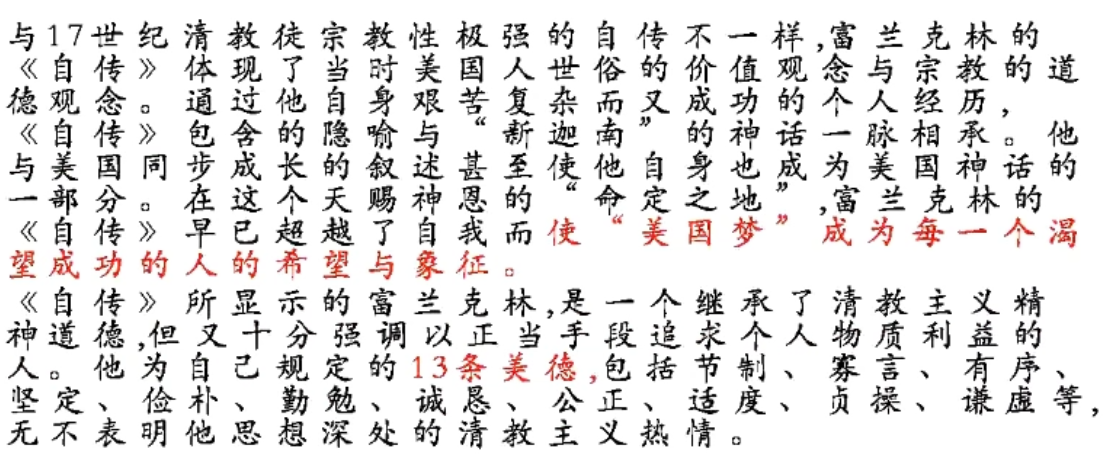 与17世纪清教徒宗教性极强的自传不一样,富兰克林的
《自传》体现了当时美国人世俗的价值观念与宗教的道
德观念。通过他自身艰苦复杂而又成功的个人经历,
《自传》包含的隐喻与“新迦南”的神话一脉相承。他
与美国同步成长的叙述甚至使他自身也成为美国神话的
一部分。在这个天赐神恩的“命定之地”,富兰克林的
《自传》早已超越了自我而使“美国梦”成为每一个渴
望成功的人的希望与象征。
《自传》所显示的富兰克林,是一个继承了清教主义精
神道德,但又十分强调以正当手段追求个人物质利益的
人。他为自己规定的13条美德,包括节制、寡言、有序、
坚定、俭朴、勤勉、诚恳、公正、适度、贞操、谦虚等,
无不表明他思想深处的清教主义热情。